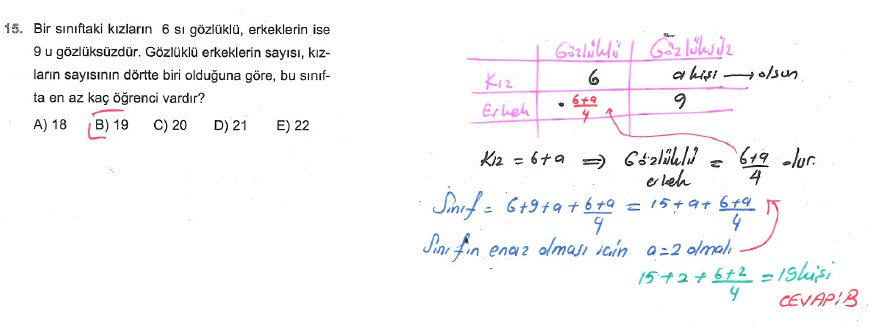 15. Bir sınıftaki kızların 6 sı gözlüklü, erkeklerin ise
9 u gözlüksüzdür. Gözlüklü erkeklerin sayısı, kız-
ların sayısının dörtte biri olduğuna göre, bu sınıf-
ta en az kaç öğrenci vardır?
A) 18 B) 19 C) 20 D) 21 E) 22
Gözlüklü Gözlüksüz
Kız 6 a kişi → olsun
Erkek • 6+a/4 9
Kız = 6+a ⇒ Gözlüklü erkek = 6+a/4 olur.
Sınıf = 6+9+a+6+a/4 = 15+a+6+a/4
Sınıfın enaz olması için a=2 olmalı
15+2+6+2/4 = 19kişi
CEVAP:B